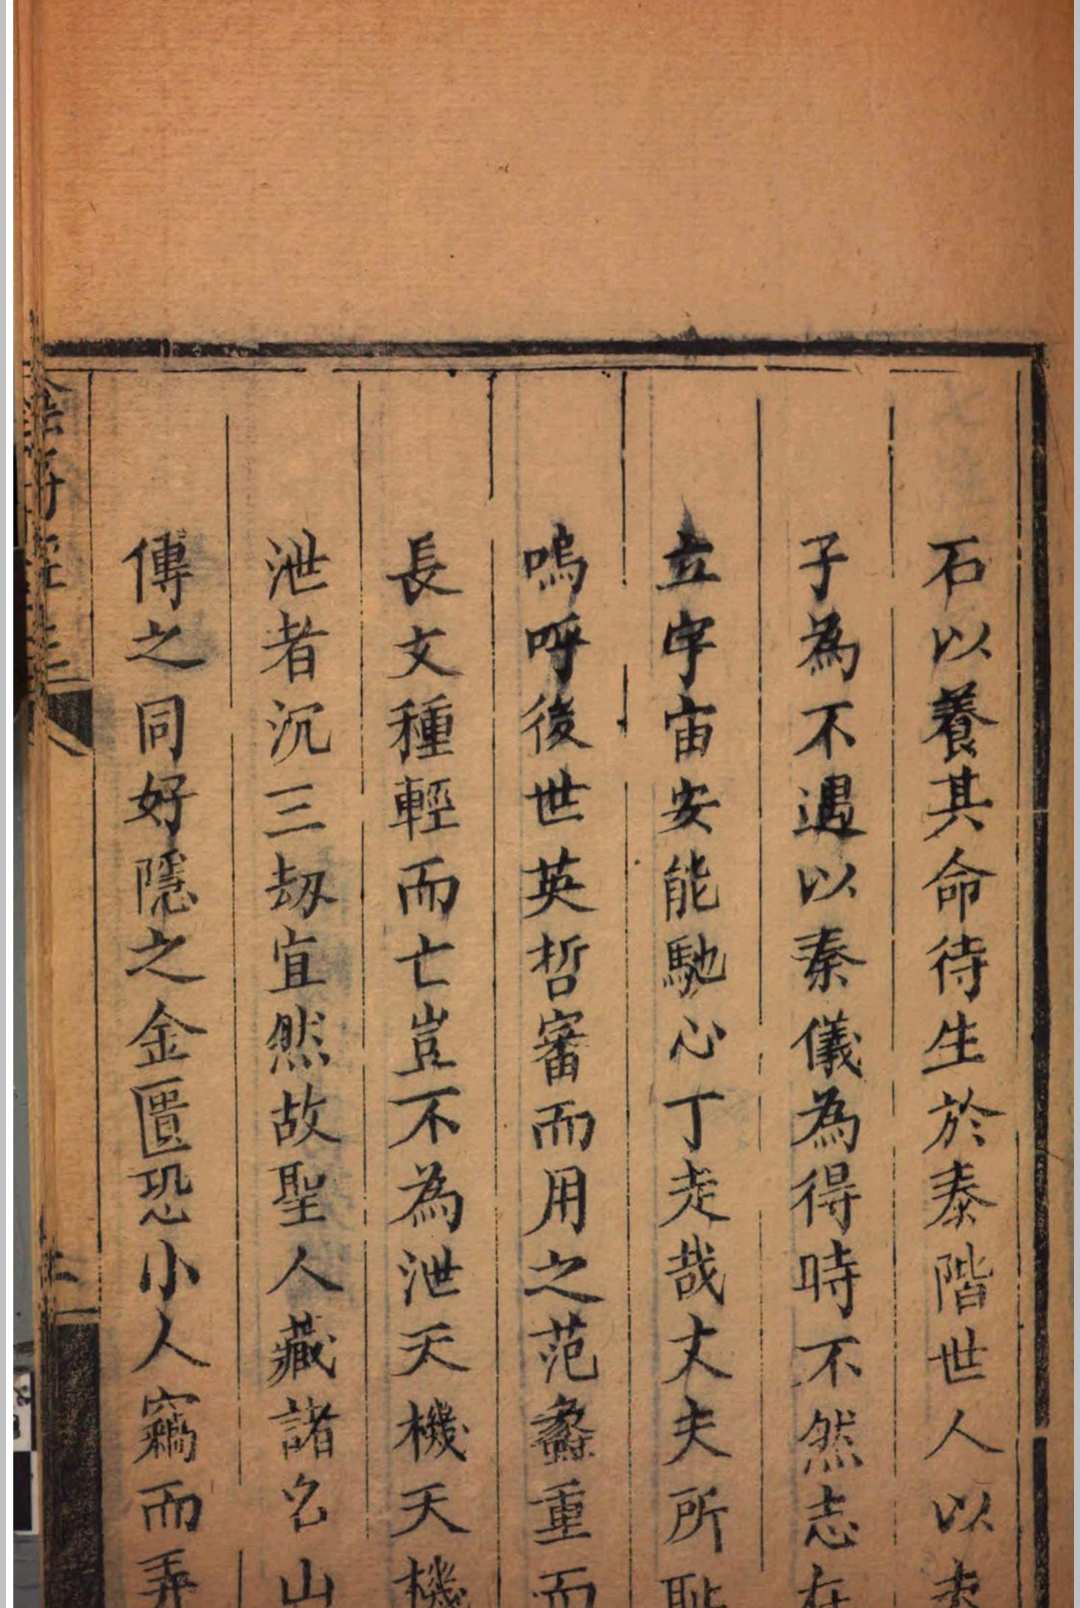 石以養其命待生於泰階世人以夷
子為不遇以秦儀為得時不然志在
立宇宙安能馳心丁走哉丈夫所恥
嗚呼後世英哲審而用之范蠡重而
長文種輕而亡豈不為泄天機天機
泄者沉三劫宜然故聖人藏諸名山
傳之同好隱之金匱恐小人竊而弄